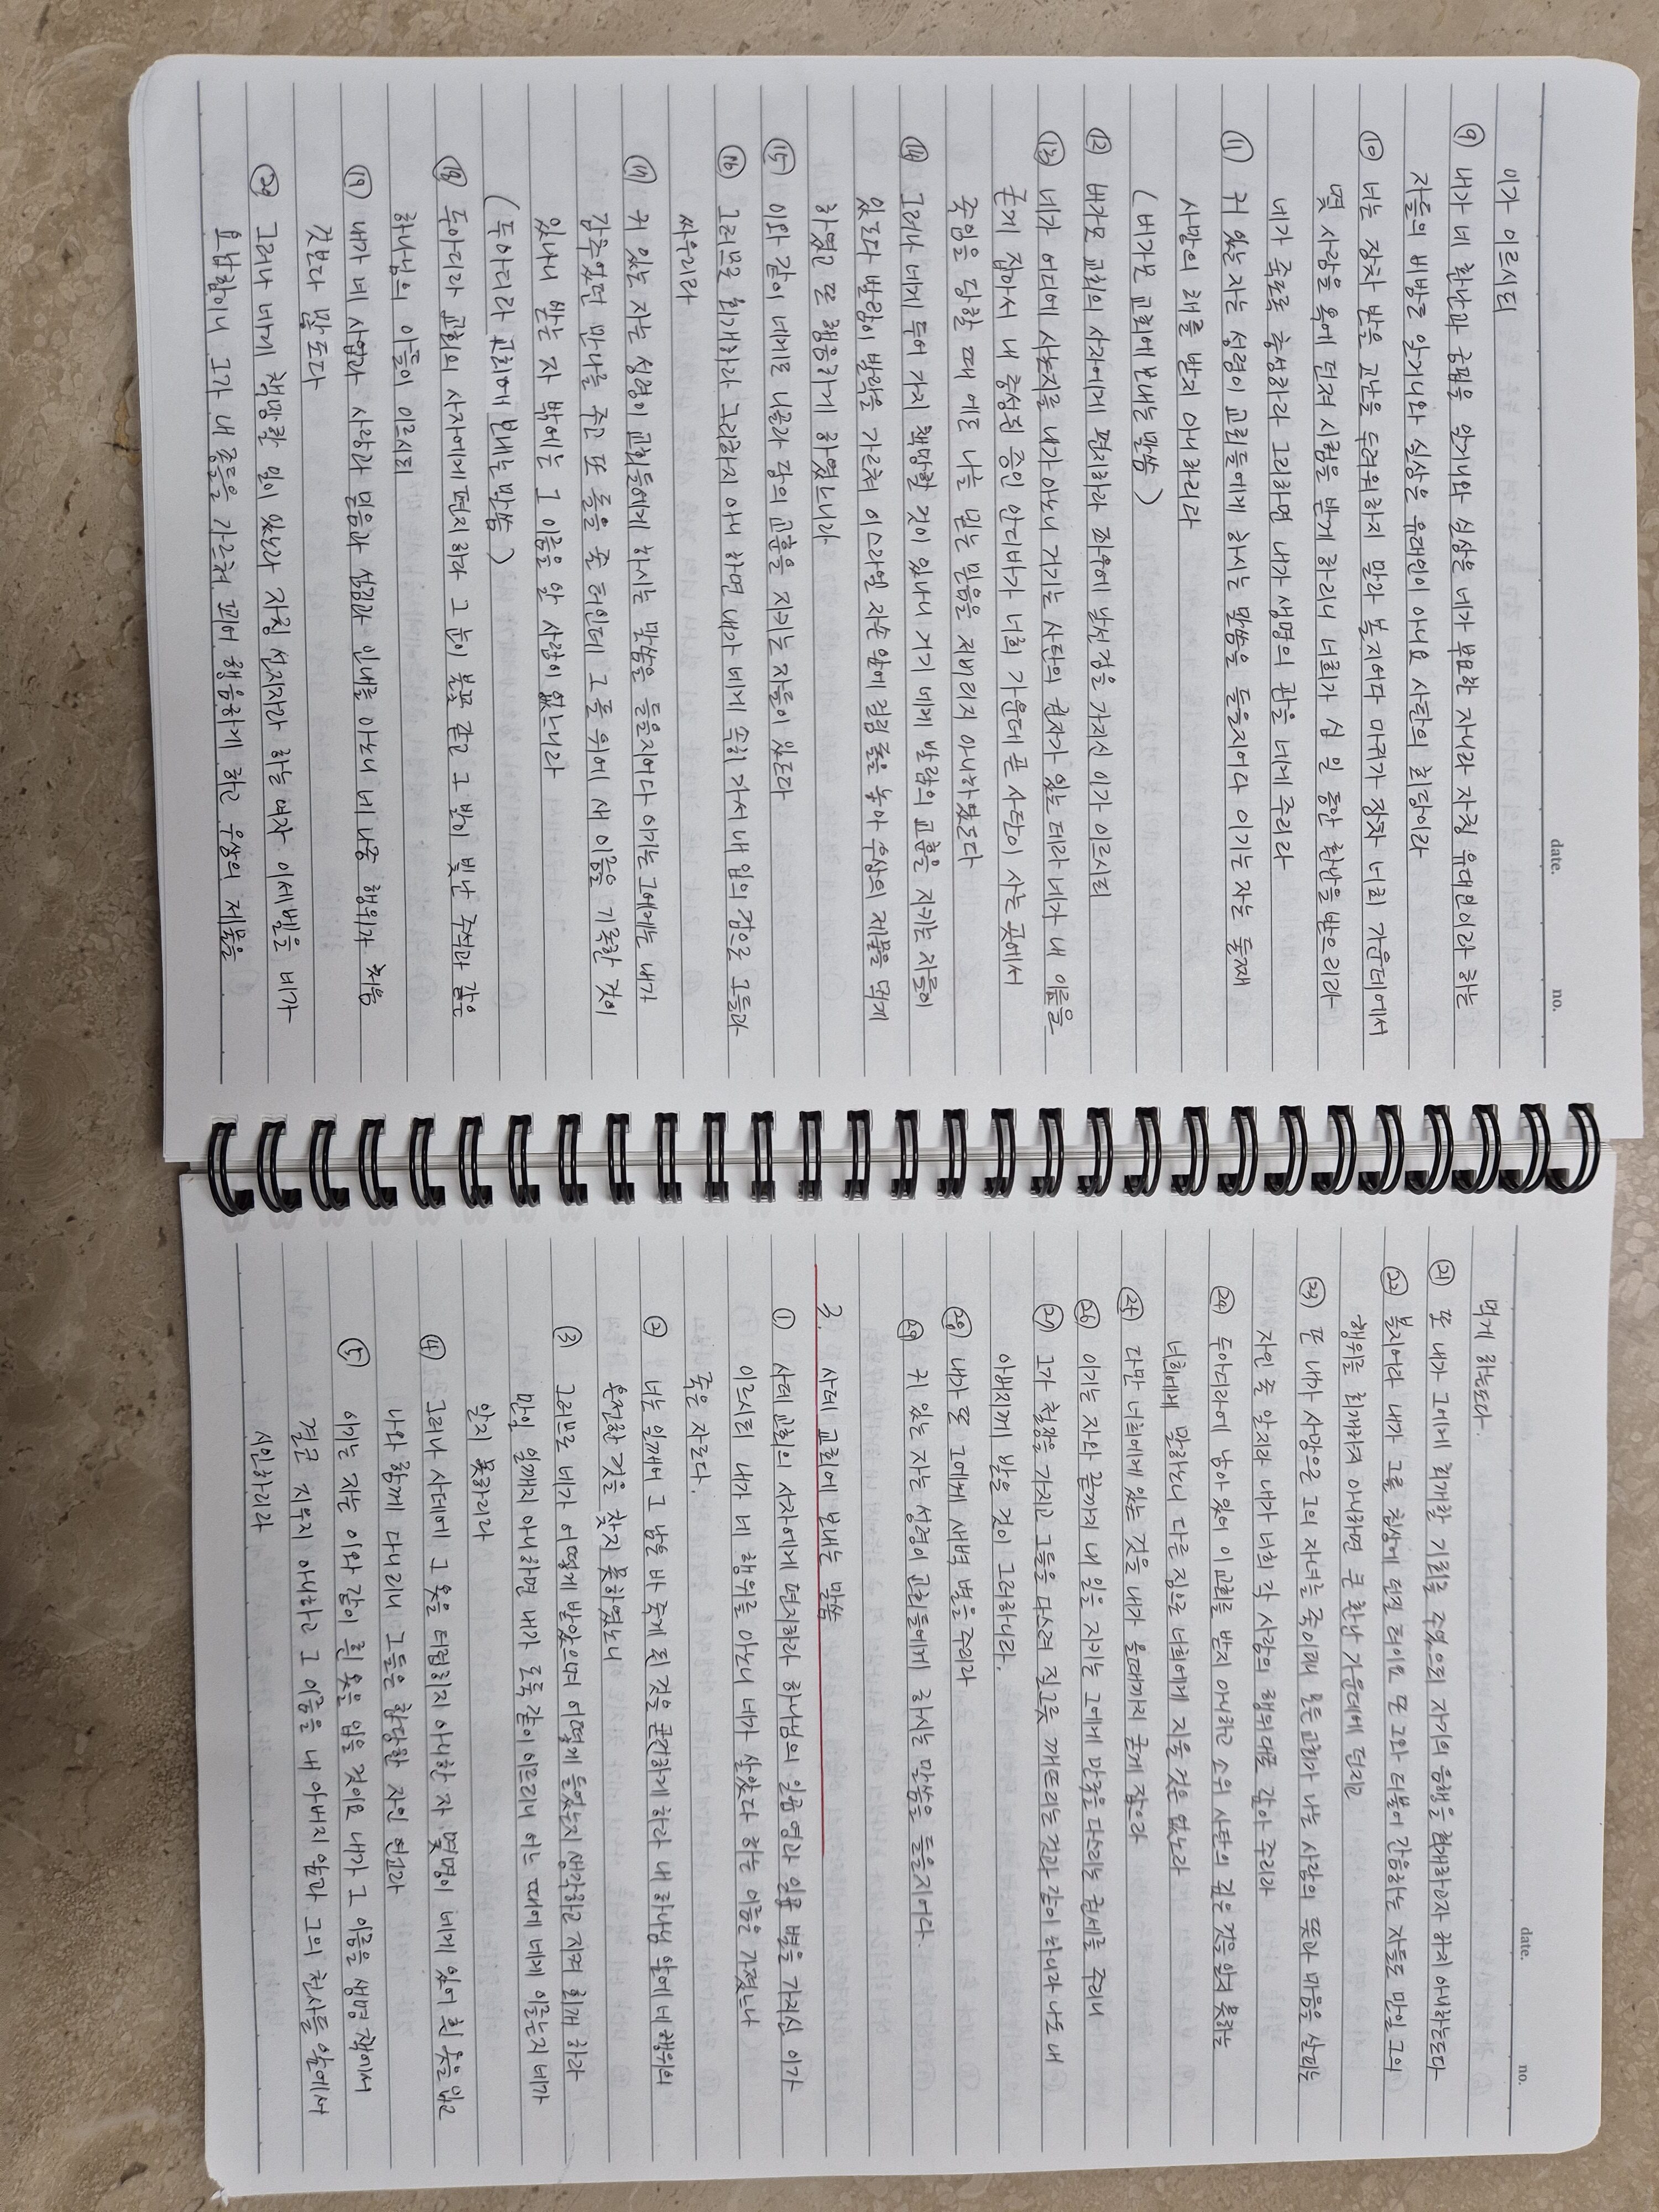 date. no.
이가 이르시되
⑨ 내가 네 환난과 궁핍을 알거니와 실상은 네가 부요한 자니라 자칭 유대인이라 하는
자들의 비방도 알거니와 실상은 유대인이 아니요 사탄의 회당이라
⑩ 너는 장차 받을 고난을 두려워하지 말라 볼지어다 마귀가 장차 너희 가운데에서
몇 사람을 옥에 던져 시험을 받게 하리니 너희가 십 일 동안 환난을 받으리라
네가 죽도록 충성하라 그리하면 내가 생명의 관을 네게 주리라
⑪ 귀 있는 자는 성령이 교회들에게 하시는 말씀을 들을지어다 이기는 자는 둘째
사망의 해를 받지 아니하리라
(버가모 교회에 보내는 말씀)
⑫ 버가모 교회의 사자에게 편지하라 좌우에 날선 검을 가지신 이가 이르시되
⑬ 네가 어디에 사는지를 내가 아노니 거기는 사탄의 권좌가 있는 데라 네가 내 이름을
굳게 잡아서 내 충성된 증인 안디바가 너희 가운데 곧 사탄이 사는 곳에서
죽임을 당할 때에도 나를 믿는 믿음을 저버리지 아니하였도다
⑭ 그러나 네게 두어 가지 책망할 것이 있나니 거기 네게 발람의 교훈을 지키는 자들이
있도다 발람이 발락을 가르쳐 이스라엘 자손 앞에 걸림돌을 놓아 우상의 제물을 먹게
하였고 또 행음하게 하였느니라
⑮ 이와 같이 네게도 니골라 당의 교훈을 지키는 자들이 있도다
⑯ 그러므로 회개하라 그리하지 아니 하면 내가 네게 속히 가서 내 입의 검으로 그들과
싸우리라
⑰ 귀 있는 자는 성령이 교회들에게 하시는 말씀을 들을지어다 이기는 그에게는 내가
감추었던 만나를 주고 또 흰 돌을 줄 터인데 그 돌 위에 새 이름을 기록한 것이
있나니 받는 자 밖에는 그 이름을 알 사람이 없느니라
(두아디라 교회에 보내는 말씀)
⑱ 두아디라 교회의 사자에게 편지하라 그 눈이 불꽃 같고 그 발이 빛난 주석과 같은
하나님의 아들이 이르시되
⑲ 내가 네 사업과 사랑과 믿음과 섬김과 인내를 아노니 네 나중 행위가 처음
것보다 많도다
⑳ 그러나 네게 책망할 일이 있노라 자칭 선지자라 하는 여자 이세벨을 네가
용납함이니 그가 내 종들을 가르쳐 꾀어 행음하게 하고 우상의 제물을
date. no.
먹게 하는도다.
㉑ 또 내가 그에게 회개할 기회를 주었으되 자기의 음행을 회개하고자 하지 아니하는도다
㉒ 볼지어다 내가 그를 침상에 던질 터이요 또 그와 더불어 간음하는 자들도 만일 그의
행위를 회개하지 아니하면 큰 환난 가운데에 던지고
㉓ 또 내가 사망으로 그의 자녀를 죽이리니 모든 교회가 나는 사람의 뜻과 마음을 살피는
자인 줄 알지라 내가 너희 각 사람의 행위대로 갚아 주리라
㉔ 두아디라에 남아 있어 이 교훈을 받지 아니하고 소위 사탄의 깊은 것을 알지 못하는
너희에게 말하노니 다른 짐으로 너희에게 지울 것은 없노라
㉕ 다만 너희에게 있는 것을 내가 올때까지 굳게 잡으라
㉖ 이기는 자와 끝까지 내 일을 지키는 그에게 만국을 다스리는 권세를 주리니
㉗ 그가 철장을 가지고 그들을 다스려 질그릇 깨뜨리는 것과 같이 하리라 나도 내
아버지께 받은 것이 그러하니라.
㉘ 내가 또 그에게 새벽 별을 주리라
㉙ 귀 있는 자는 성령이 교회들에게 하시는 말씀을 들을지어다.
3. 사데 교회에 보내는 말씀
① 사데 교회의 사자에게 편지하라 하나님의 일곱 영과 일곱 별을 가지신 이가
이르시되 내가 네 행위를 아노니 네가 살았다 하는 이름은 가졌으나
죽은 자로다.
② 너는 일깨어 그 남은 바 죽게 된 것을 굳건하게 하라 내 하나님 앞에 네 행위의
온전한 것을 찾지 못하였노니
③ 그러므로 네가 어떻게 받았으며 어떻게 들었는지 생각하고 지켜 회개 하라
만일 일깨지 아니하면 내가 도둑 같이 이르리니 어느 때에 네게 이를는지 네가
알지 못하리라
④ 그러나 사데에 그 옷을 더럽히지 아니한 자 몇명이 네게 있어 흰 옷을 입고
나와 함께 다니리니 그들은 합당한 자인 연고라
⑤ 이기는 자는 이와 같이 흰 옷을 입을 것이요 내가 그 이름을 생명 책에서
결코 지우지 아니하고 그 이름을 내 아버지 앞과 그의 천사들 앞에서
시인하리라